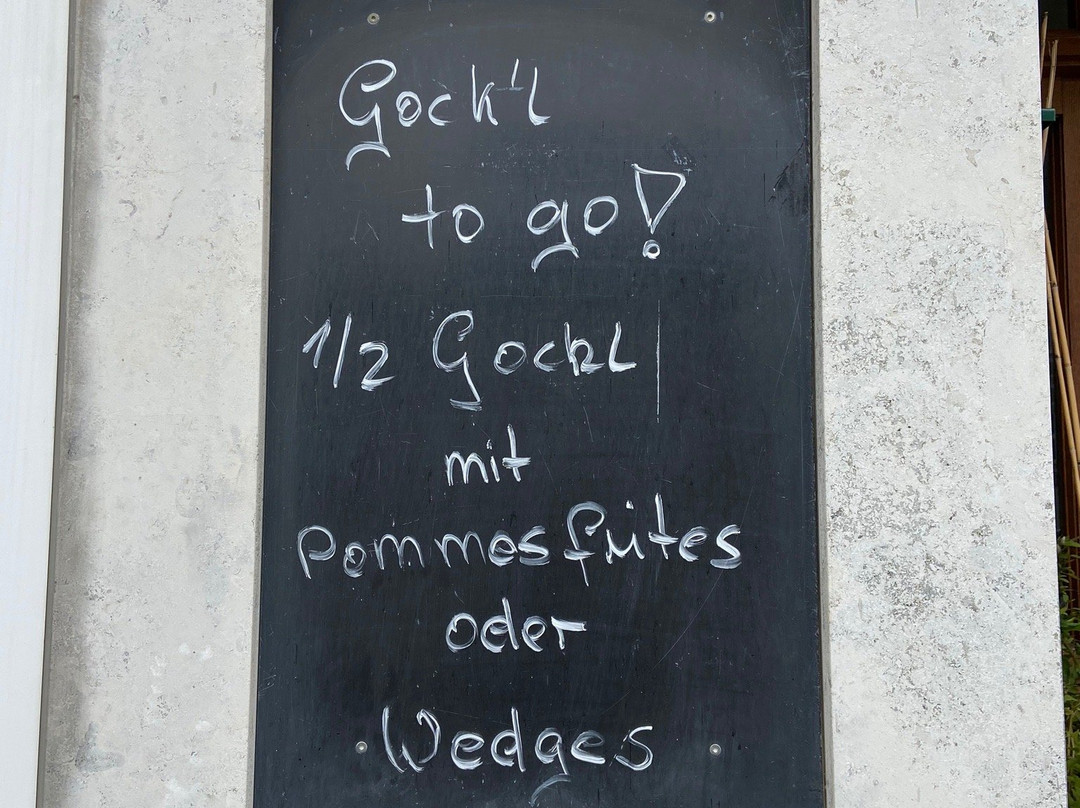 Gock'l
to go!
1/2 Gockl
mit
Pommes frites
oder
Wedges